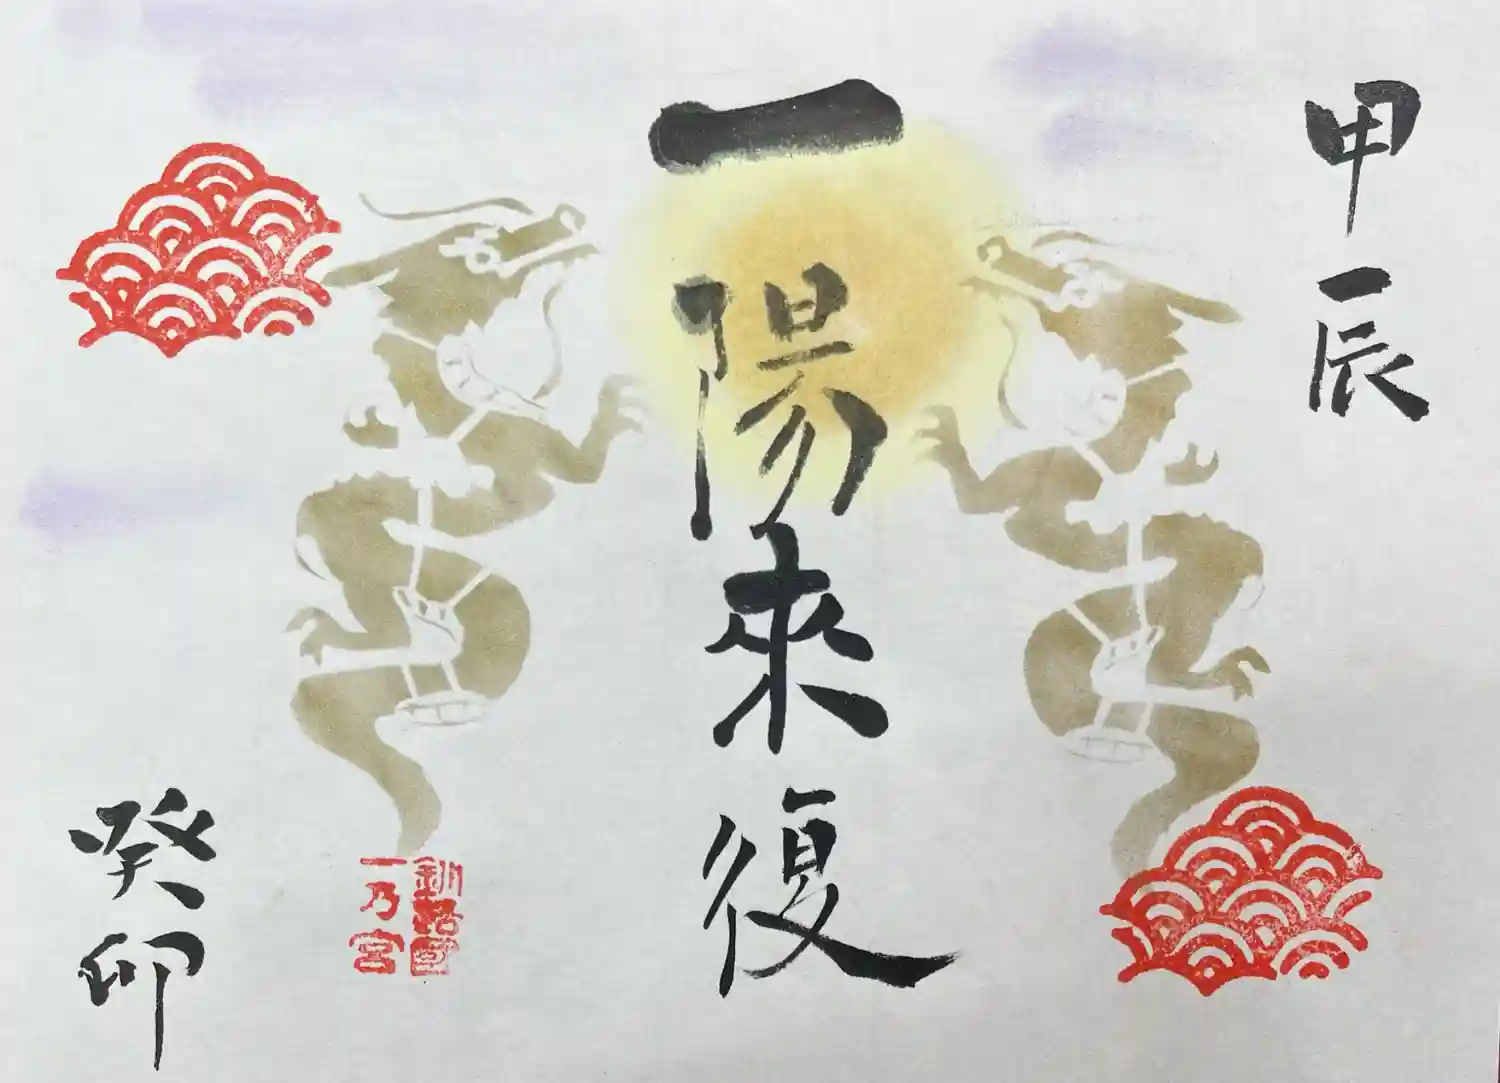 甲辰
一陽來復
釧路國
一乃宮
癸卯